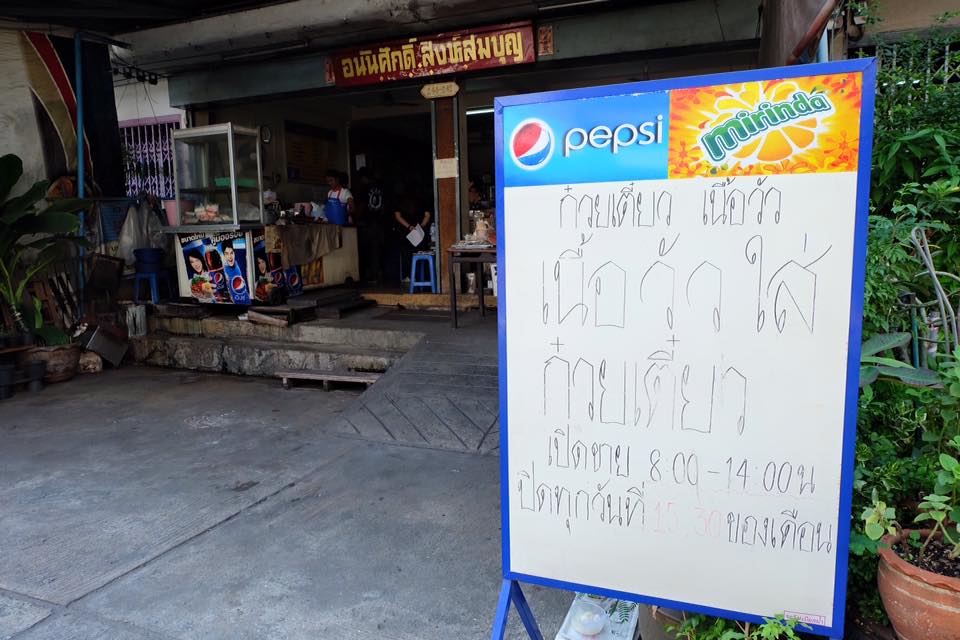 อนันศักดิ์ สิงห์สมบุญ
pepsi
mirinda
ก๋วยเตี๋ยว เนื้อวัว
เนื้อวัวใส่
ก๋วยเตี๋ยว
เปิดขาย 8:00 - 14:00 น
ปิดทุกวันที่ 15,30 ของเดือน